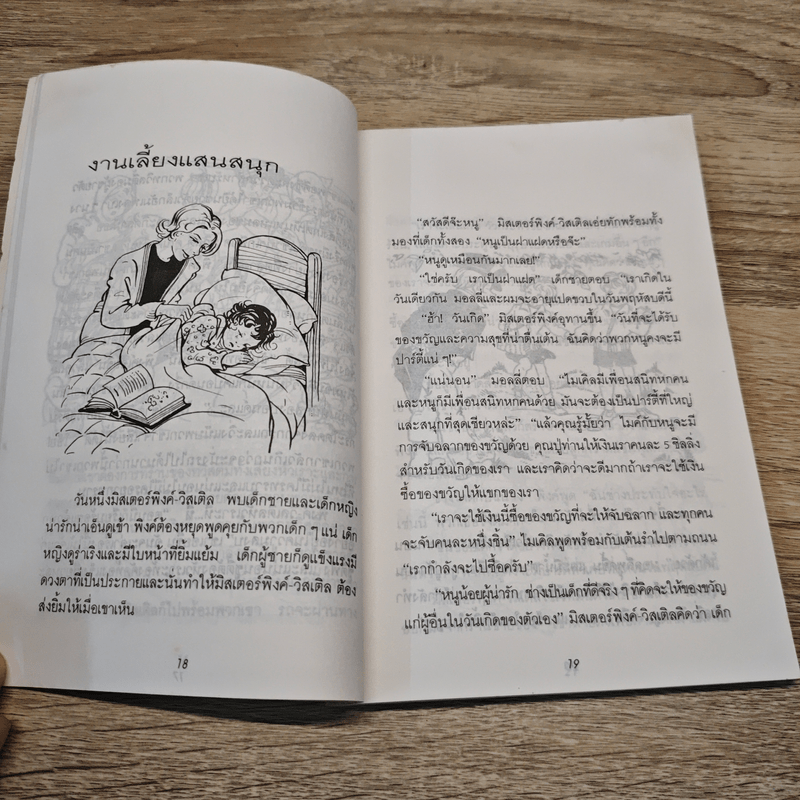 งานเลี้ยงแสนสนุก
วันหนึ่งมิสเตอร์พิงค์-วิสเติล พบเด็กชายและเด็กหญิง
น่ารักน่าเอ็นดูเข้า พิงค์ต้องหยุดพูดคุยกับพวกเด็ก ๆ แน่ เด็ก
หญิงดูร่าเริงและมีใบหน้าที่ยิ้มแย้ม เด็กผู้ชายก็ดูแข็งแรงมี
ดวงตาที่เป็นประกายและนั่นทำให้มิสเตอร์พิงค์-วิสเติล ต้อง
ส่งยิ้มให้เมื่อเขาเห็น
18
“สวัสดีจ๊ะหนู” มิสเตอร์พิงค์-วิสเติลเอ่ยทักพร้อมทั้ง
มองที่เด็กทั้งสอง “หนูเป็นฝาแฝดหรือจ๊ะ”
“หนูดูเหมือนกันมากเลย!”
“ใช่ครับ เราเป็นฝาแฝด” เด็กชายตอบ “เราเกิดใน
วันเดียวกัน มอลลี่และผมจะอายุแปดขวบในวันพฤหัสบดีนี้
“ฮ้า! วันเกิด” มิสเตอร์พิงค์อุทานขึ้น “วันที่จะได้รับ
ของขวัญและความสุขที่น่าตื่นเต้น ฉันคิดว่าพวกหนูคงจะมี
ปาร์ตี้แน่ ๆ!”
“แน่นอน” มอลลี่ตอบ “ไมเคิลมีเพื่อนสนิทหกคน
และหนูก็มีเพื่อนสนิทหกคนด้วย มันจะต้องเป็นปาร์ตี้ที่ใหญ่
และสนุกที่สุดเชียวหล่ะ” “แล้วคุณรู้มั้ยว่า ไมค์กับหนูจะมี
การจับฉลากของขวัญด้วย คุณปู่ท่านให้เงินเราคนละ 5 ชิลลิ่ง
สำหรับวันเกิดของเรา และเราคิดว่าจะดีมากถ้าเราจะใช้เงิน
ซื้อของขวัญให้แขกของเรา
“เราจะใช้เงินนี้ซื้อของขวัญที่จะให้จับฉลาก และทุกคน
จะจับคนละหนึ่งชิ้น” ไมเคิลพูดพร้อมกับเต้นรำไปตามถนน
“เรากำลังจะไปซื้อครับ”
“หนูน้อยผู้น่ารัก ช่างเป็นเด็กที่ดีจริง ๆ ที่คิดจะให้ของขวัญ
แก่ผู้อื่นในวันเกิดของตัวเอง” มิสเตอร์พิงค์-วิสเติลคิดว่า เด็ก
19